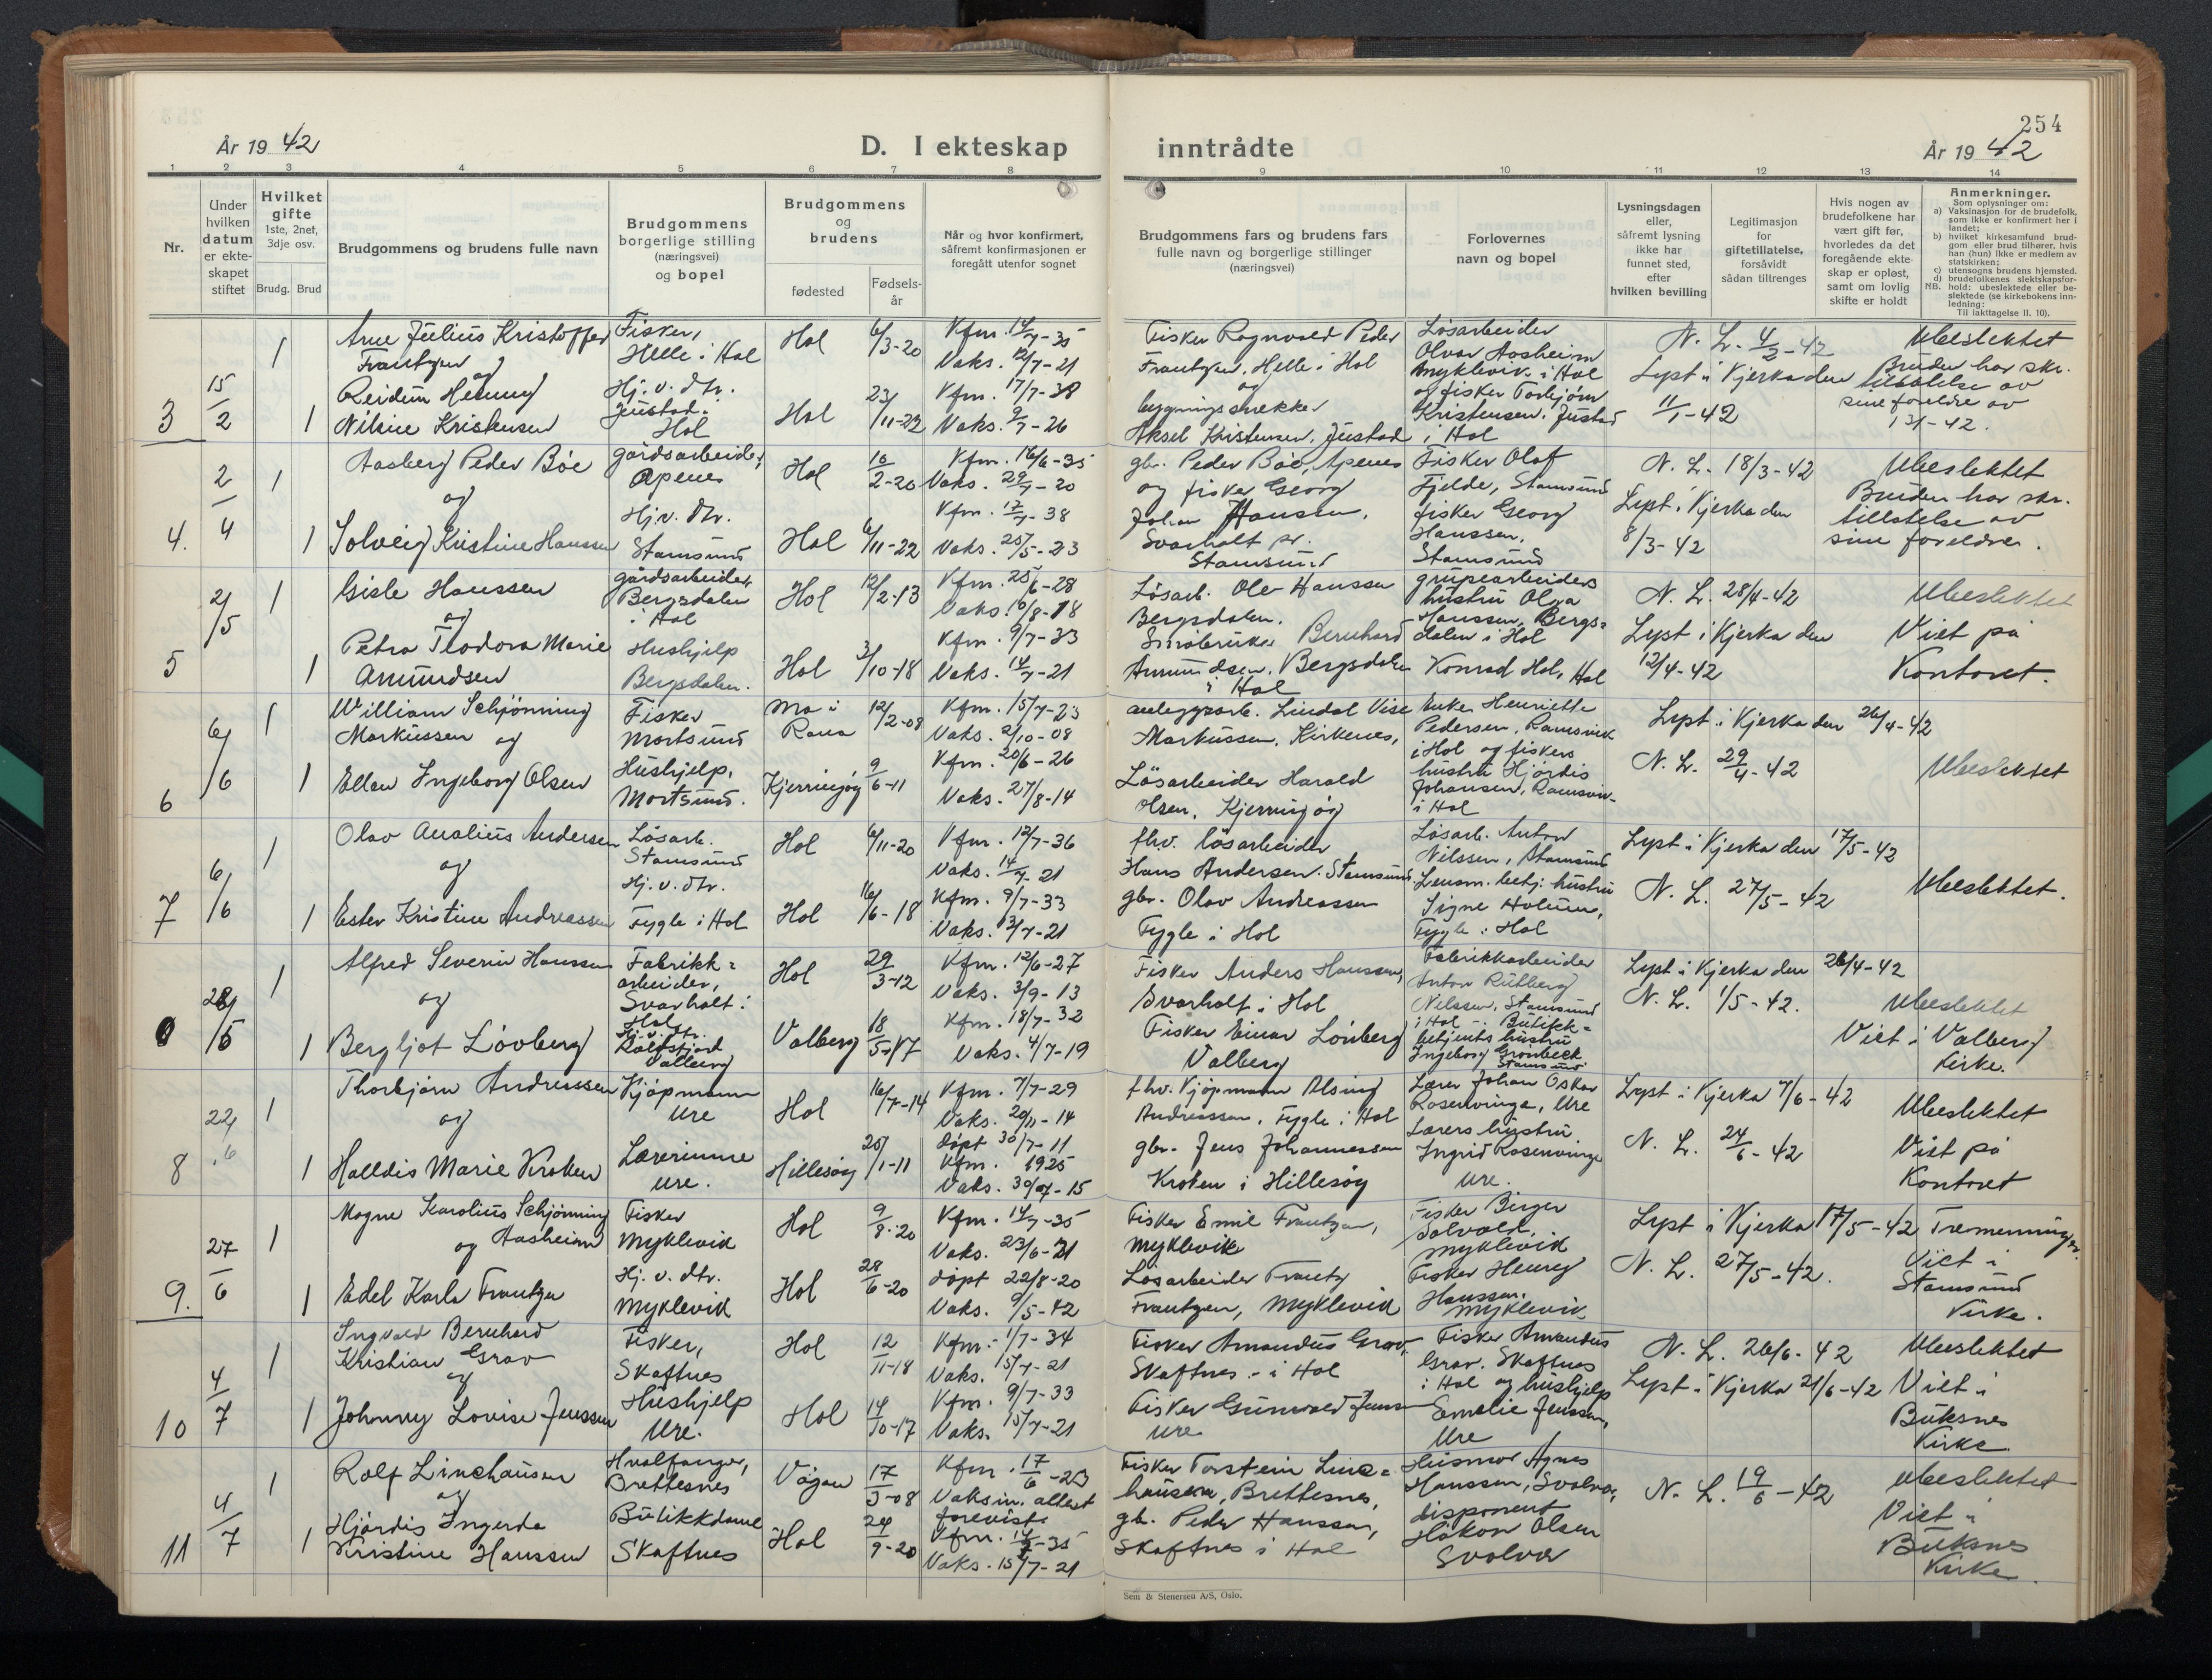 254
År 1942
D. I ekteskap
inntrådte
År 1942
1 2 3 4 5 6 7 8 9 10 11 12 13 14
Nr.
Under
hvilken
datum
er ekte-
skapet
stiftet
Hvilket
gifte
1ste, 2net,
3dje osv.
Brudg. Brud
Brudgommens og brudens fulle navn
Brudgommens
borgerlige stilling
(næringsvei)
og bopel
Brudgommens
og
brudens
fødested
Fødsels-
år
Når og hvor konfirmert,
såfremt konfirmasjonen er
foregått utenfor sognet
Brudgommens fars og brudens fars
fulle navn og borgerlige stillinger
(næringsvei)
Forlovernes
navn og bopel
Lysningsdagen
eller,
såfremt lysning
ikke har
funnet sted,
efter
hvilken bevilling
Legitimasjon
for
giftetillatelse,
forsåvidt
sådan tiltrenges
Hvis nogen av
brudefolkene har
vært gift før,
hvorledes da det
foregående ekte-
skap er opløst,
samt om lovlig
skifte er holdt
Anmerkninger.
Som oplysninger om:
a) Vaksinasjon for de brudefolk,
som ikke er konfirmert her i
landet;
b) hvilket kirkesamfund brud-
gom eller brud tilhører, hvis
han (hun) ikke er medlem av
statskirken;
c) utensogns brudens hjemsted.
d) brudefolkenes slektskapsfor-
NB. hold: ubeslektede eller be-
slektede (se kirkebokens inn-
ledning:
Til iakttagelse II. 10).
3
15/2
1
1
Arne Julius Kristoffer
Frantzen
og
Reidun Henny
Nilsine Kristensen
Fisker,
Helle i Hol
Hj. v. dtr.
Justad.
Hol
Hol
6/3-20
Hol
23/11-22
Kfm. 14/7-35
Vaks. 12/7-21
Kfm. 17/7-38
Vaks. 9/7-26
Fisker Ragnvald Peder
Frantzen, Helle i Hol
og
bygningssnekker
Aksel Kristensen, Justad i Hol
Løsarbeider
Olvar Aasheim
Myklevik i Hol
og fisker Torbjørn
Kristensen, Justad
N. L. 4/2-42
Lyst i Kjerka den
11/1-42
Ubeslektet
Bruden har skr.
tillatelse av
sine foreldre av
4.
2/4
1
1
Aasberg Peder Bøe
og
Solveig Kristine Hanssen
gårdsarbeider,
Apenes
Hj.v. dtr.
Stamsund
Hol
10/2-20
Hol
6/11-22
Kfm. 16/6-35
Vaks. 29/7-20
Kfm. 17/7-38
Vaks. 25/5-23
gbr. Peder Bøe, Apenes
og fisker Georg
Johan Hanssen,
Svarholt pr.
Stamsund
Fisker Olaf
Fjelde, Stamsund
fisker Georg
Hanssen,
Stamsund
N. L. 18/3-42
Lyst i Kjerka den
8/3-42
Ubeslektet
Bruden har skr.
tillatelse av
sine foreldre.
5
2/5
1
1
Gisle Hanssen
og
Petra Teodora Marie
Amundsen
gårdsarbeider,
Bergsdalen
i Hol
Hushjelp
Bergsdalen.
Hol
12/2-13
Hol
3/10-18
Kfm. 25/6-28
Vaks. 10/8-18
Kfm. 9/7-33
Vaks. 14/7-21
Løsarb. Ole Hanssen
Bergsdalen.
Småbruker Bernhard
Amundsen, Bergsdalen
i Hol
grubearbeiders
hustru Olga
Hanssen, Bergs-
dalen i Hol
Konrad Hol, Hol
N. L. 28/4-42
Lyst i Kjerka den
12/4-42
Ubeslektet
Viet på
Kontoret.
6
6/6
1
1
William Schjønning
Markussen og
Ellen Ingeborg Olsen
Fisker
Mortsund
Hushjelp,
Mortsund.
Mo i
Rana
12/2-08
Kjerringøy
9/6-11
Kfm. 15/7-23
Vaks. 2/10-08
Kfm. 20/6-26
Vaks. 27/8-14
anleggsarb. Lindal Vise
Markussen, Kirkenes,
Løsarbeider Harald
Olsen, Kjerringøy
Enke Henriette
Pedersen, Ramsvik
i Hol og fiskers
hustru Hjørdis
Johansen, Ramsvik
i Hol
Lyst i Kjerka den 26/4-42
N. L. 29/4-42
Ubeslektet
7
6/6
1
1
Olav Analius Andersen
og
Ester Kristine Andreassen
Løsarb.
Stamsund
Hj. v. dtr.
Fygle i Hol
Hol
6/11-20
Hol
16/6-18
Kfm. 12/7-36
Vaks. 14/7-21
Kfm. 9/7-33
Vaks. 13/7-21
fhv. løsarbeider
Hans Andersen. Stamsund.
gbr. Olav Andreassen
Fygle i Hol
Løsarb. Anton
Nilssen, Stamsund
Lensm. betj. hustru
Signe Holum,
Fygle i Hol
Lyst i Kjerka den 17/5-42
N. L. 27/5-42
Ubeslektet.
1
1
Alfred Severin Hanssen
og
Bergljot Lövberg
Fabrikk-
arbeider,
Svarholt i
Hol
Hj.v. dtr.
Valberg
Hol
29/3-12
Valberg
18/5-17
Kfm. 12/6-27
Vaks. 3/9-13
Kfm. 18/7-32
Vaks. 4/7-19
Fisker Anders Hanssen,
Svarholt i Hol
Fisker Einar Lönberg
Valberg
Fabrikkarbeider
Anton Rutberg
Nilssen, Stamsund
i Hol - Butikk-
betjents hustru
Ingeborg Grønbeck
Stamsund
Lyst i Kjerka den 26/4-42
N. L. 1/5-42.
Ubeslektet
Viet i Valberg
Kirke.
8
22/6
1
1
Thorbjørn Andreassen
og
Halldis Marie Kroken
Kjøpmann
Ure
Lærerinne
Ure.
Hol
16/7-14
Hillesøy
25/1-11
Kfm. 7/7-29
Vaks. 20/11-14
døpt 30/7-11
Kfm. 1925
Vaks. 30/7-15
fhv. Kjøpmann Alsing
Andreassen, Fygle i Hol
gbr. Jens Johannessen
Kroken i Hillesøy
Lærer Johan Oskar
Rosenvinge, Ure
Lærers hustru
Ingrid Rosenvinge
Ure.
Lyst i Kjerka 7/6-42
N. L. 24/6-42
Ubeslektet
Viet på
Kontoret
9.
27/6
1
1
Magne Karolius Schjønning
og Aasheim
Edel Karla Frantzen
Fisker
Myklevik
Hj. v. dtr.
Myklevik
Hol
9/8-20
Hol
28/6-20
Kfm. 14/7-35
Vaks. 23/6-21
døpt 22/8-20
Vaks. 9/5-42
Fisker Emil Frantzen,
Myklevik
Løsarbeider Frantz
Frantzen, Myklevik
Fisker Birger
Solvold,
Myklevik
Fisker Henry
Hanssen.
Myklevik
Lyst i Kjerka 17/5-42
N. L. 27/5-42.
Tremenninger.
Viet i
Stamsund
Kirke.
10
4/7
1
1
Ingvald Bernhard
Kristian Grav
og
Johanny Lovise Jenssen
Fisker,
Skaftnes
Hushjelp
Ure.
Hol
12/11-18
Hol
14/10-17
Kfm. 1/7-34
Vaks. 15/7-21
Kfm. 9/7-33
Vaks. 15/7-21
Fisker Amandus Grav,
Skaftnes - i Hol
Fisker Gunvald Jenssen
Ure
Fisker Amandus
Grav. Skaftnes
i Hol og hushjelp
Emelie Jenssen,
Ure
N. L. 26/6-42
Lyst i Kjerka 21/6-42
Ubeslektet
Viet i
Buksnes
Kirke
11
4/7
1
1
Rolf Linchausen
og
Hjördis Ingerda
Kristine Hanssen
Hvalfanger,
Brettesnes
Butikkdame
Skaftnes
Vågan
17/3-08
Hol
24/9-20
Kfm. 17/6-23
Vaksin. attest
forevist.
Kfm. 14/7-35
Vaks. 15/7-21
Fisker Torstein Linc-
hausen, Brettesnes,
gb. Peder Hanssen,
Skaftnes i Hol
Husmor Agnes
Hanssen, Svolvær,
disponent
Håkon Olsen
Svolvær
N. L. 19/6-42
Ubeslektet
Viet i
Buksnes
Kirke.
Sem & Stenersen A/S, Oslo.